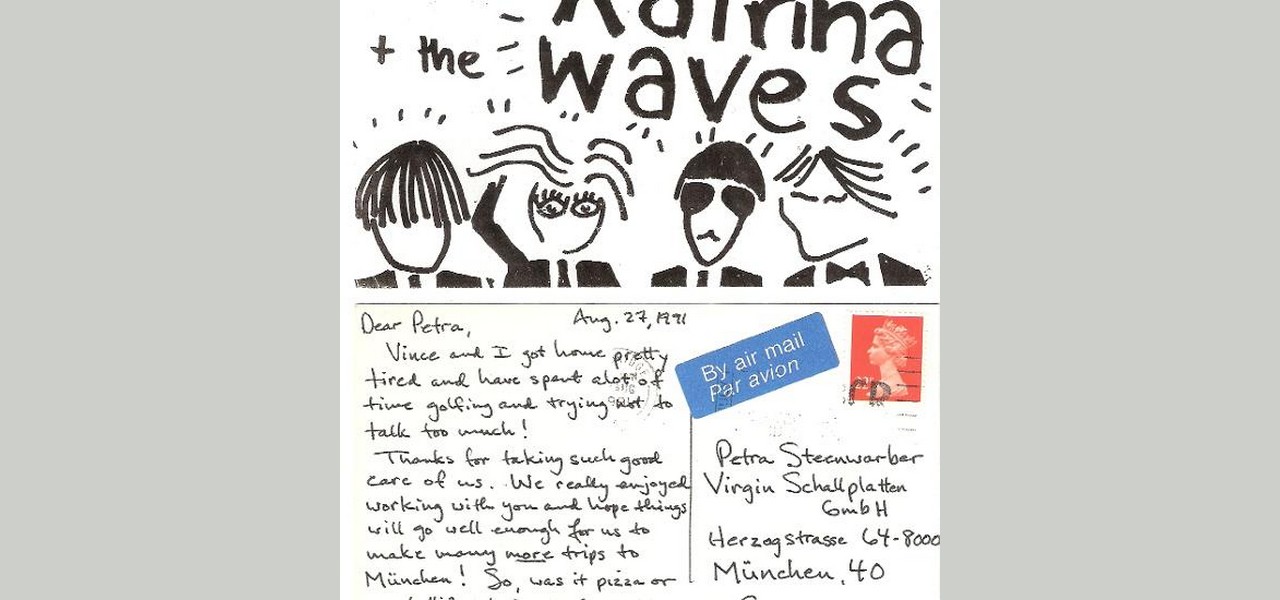 Katrina
+ the
waves
Dear Petra,
Aug. 27, 1991
Vince and I got home pretty
tired and have spent alot of
time golfing and trying not to
talk too much!
Thanks for taking such good
care of us. We really enjoyed
working with you and hope things
will go well enough for us to
make many more trips to
München! So, was it pizza or
By air mail
Par avion
Petra Steenwarber
Virgin Schallplatten
GmbH
Herzogstrasse 64-8000
München, 40